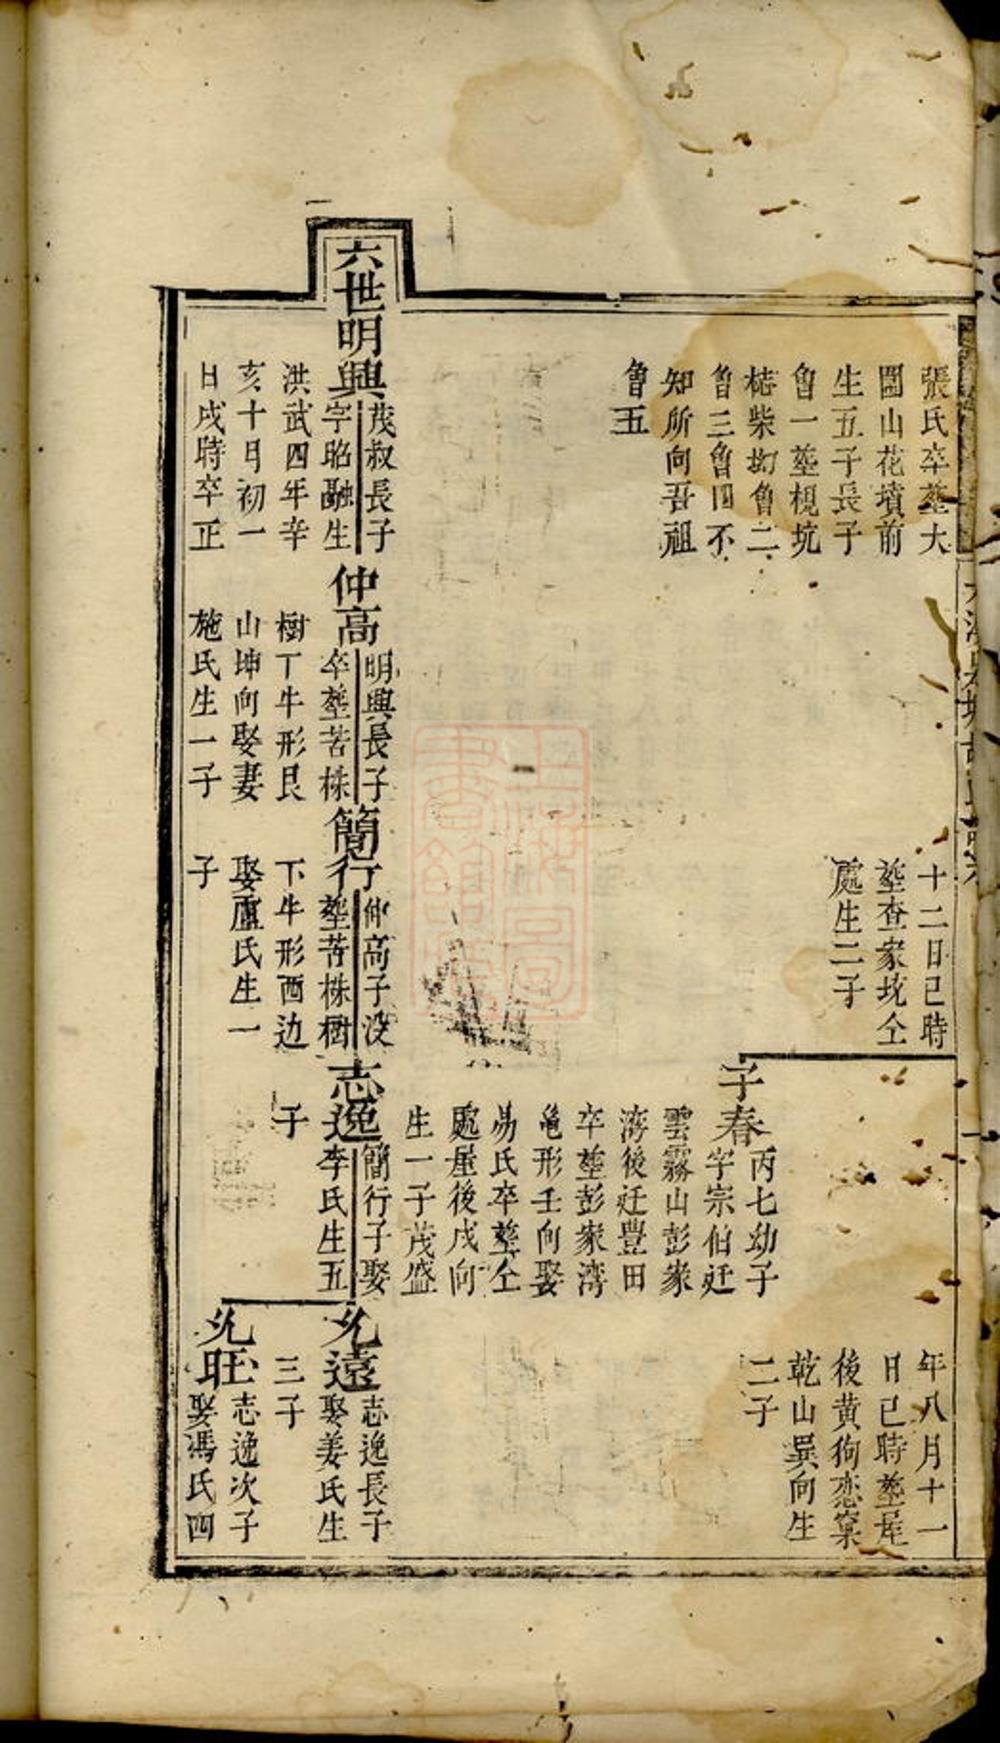 張氏卒塟大
圖山花墳前
生五子長子
魯一塟梘坑
楮柴坳魯二
魯三魯四不
知所向吾祖
魯五
十二日巳時
塟查家坑仝
處生二子
子春
丙七幼子
字宗伯迁
雲霧山彭家
湾後迁豊田
卒塟彭家湾
亀形壬向娶
易氏卒塟仝
處屋後戌向
生一子茂盛
年八月十一
日巳時塟屋
後黄狗恋窠
乾山巽向生
二子
六世明興
茂叔長子
字昭融生
洪武四年辛
亥十月初一
日戌時卒正
仲高
明興長子
卒塟苦株
樹丁牛形艮
山坤向娶妻
施氏生一子
簡行
仲高子没
塟苦株樹
下牛形酉边
娶盧氏生一
子
志逸
簡行子娶
李氏生五
子
允遠
志逸長子
娶姜氏生
三子
允旺
志逸次子
娶馮氏四